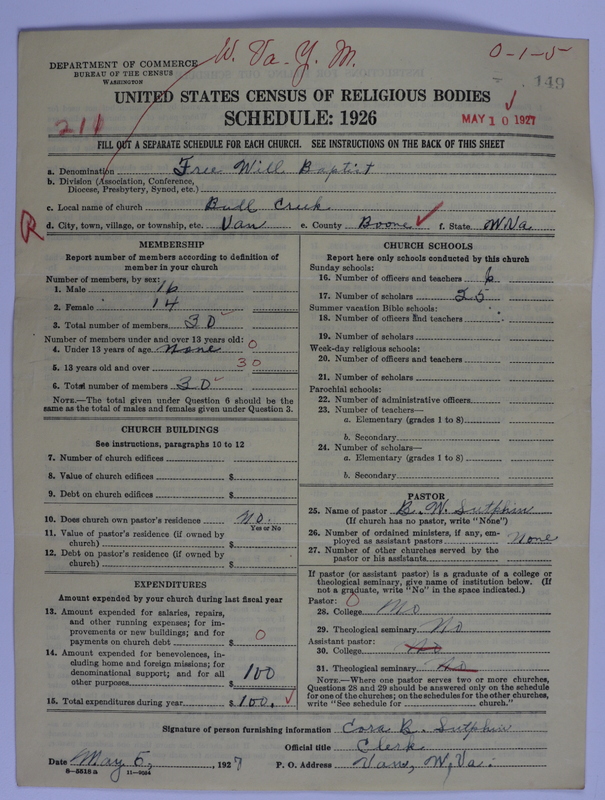 W. Va. Y. M.
0-1-5
149
DEPARTMENT OF COMMERCE
BUREAU OF THE CENSUS
WASHINGTON
UNITED STATES CENSUS OF RELIGIOUS BODIES
SCHEDULE: 1926
211
MAY 10 1927
FILL OUT A SEPARATE SCHEDULE FOR EACH CHURCH. SEE INSTRUCTIONS ON THE BACK OF THIS SHEET
a. Denomination Free Will Baptist
b. Division (Association, Conference,
Diocese, Presbytery, Synod, etc.)
c. Local name of church Bull Creek
R
d. City, town, village, or township, etc. Van e. County Boone f. State W.Va
MEMBERSHIP
Report number of members according to definition of
member in your church
Number of members, by sex:
1. Male 16
2. Female 14
3. Total number of members 30
Number of members under and over 13 years old:
4. Under 13 years of age None 0
5. 13 years old and over 30
6. Total number of members 30
NOTE.—The total given under Question 6 should be the
same as the total of males and females given under Question 3.
CHURCH BUILDINGS
See instructions, paragraphs 10 to 12
7. Number of church edifices
8. Value of church edifices $
9. Debt on church edifices $
10. Does church own pastor's residence No.
Yes or No
11. Value of pastor's residence (if owned by
church) $
12. Debt on pastor's residence (if owned by
church) $
EXPENDITURES
Amount expended by your church during last fiscal year
13. Amount expended for salaries, repairs,
and other running expenses; for im-
provements or new buildings; and for
payments on church debt $ 0
14. Amount expended for benevolences, in-
cluding home and foreign missions; for
denominational support; and for all
other purposes $ 100
15. Total expenditures during year $ 100.
CHURCH SCHOOLS
Report here only schools conducted by this church
Sunday schools:
16. Number of officers and teachers 6
17. Number of scholars 25
Summer vacation Bible schools:
18. Number of officers and teachers
19. Number of scholars
Week-day religious schools:
20. Number of officers and teachers
21. Number of scholars
Parochial schools:
22. Number of administrative officers
23. Number of teachers—
a. Elementary (grades 1 to 8)
b. Secondary
24. Number of scholars—
a. Elementary (grades 1 to 8)
b. Secondary
PASTOR
25. Name of pastor B. W. Sutphin
(If church has no pastor, write "None")
26. Number of ordained ministers, if any, em-
ployed as assistant pastors None
27. Number of other churches served by the
pastor or his assistants
If pastor (or assistant pastor) is a graduate of a college or
theological seminary, give name of institution below. (If
not a graduate, write "No" in the space indicated.)
Pastor: 0
28. College No
29. Theological seminary No
Assistant pastor:
30. College No
31. Theological seminary No
NOTE.—Where one pastor serves two or more churches,
Questions 28 and 29 should be answered only on the schedule
for one of the churches; on the schedules for the other churches,
write "See schedule for church."
Signature of person furnishing information Cora B. Sutphin
Official title Clerk
Date May 5, 1927 P. O. Address Van, W, Va.
8-5518 a 11-9054